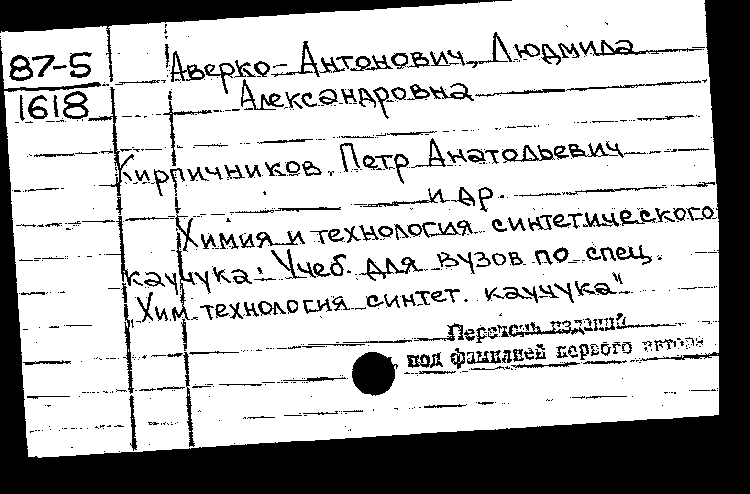 87-5
1618
Аверко-Антонович, Людмила
Александровна
Кирпичников, Петр Анатольевич
и др.
Химия и технология синтетического
каучука: Учеб. для вузов по спец.
"Хим. технология синтет. каучука"
Перечень изданий
под фамилией первого автора